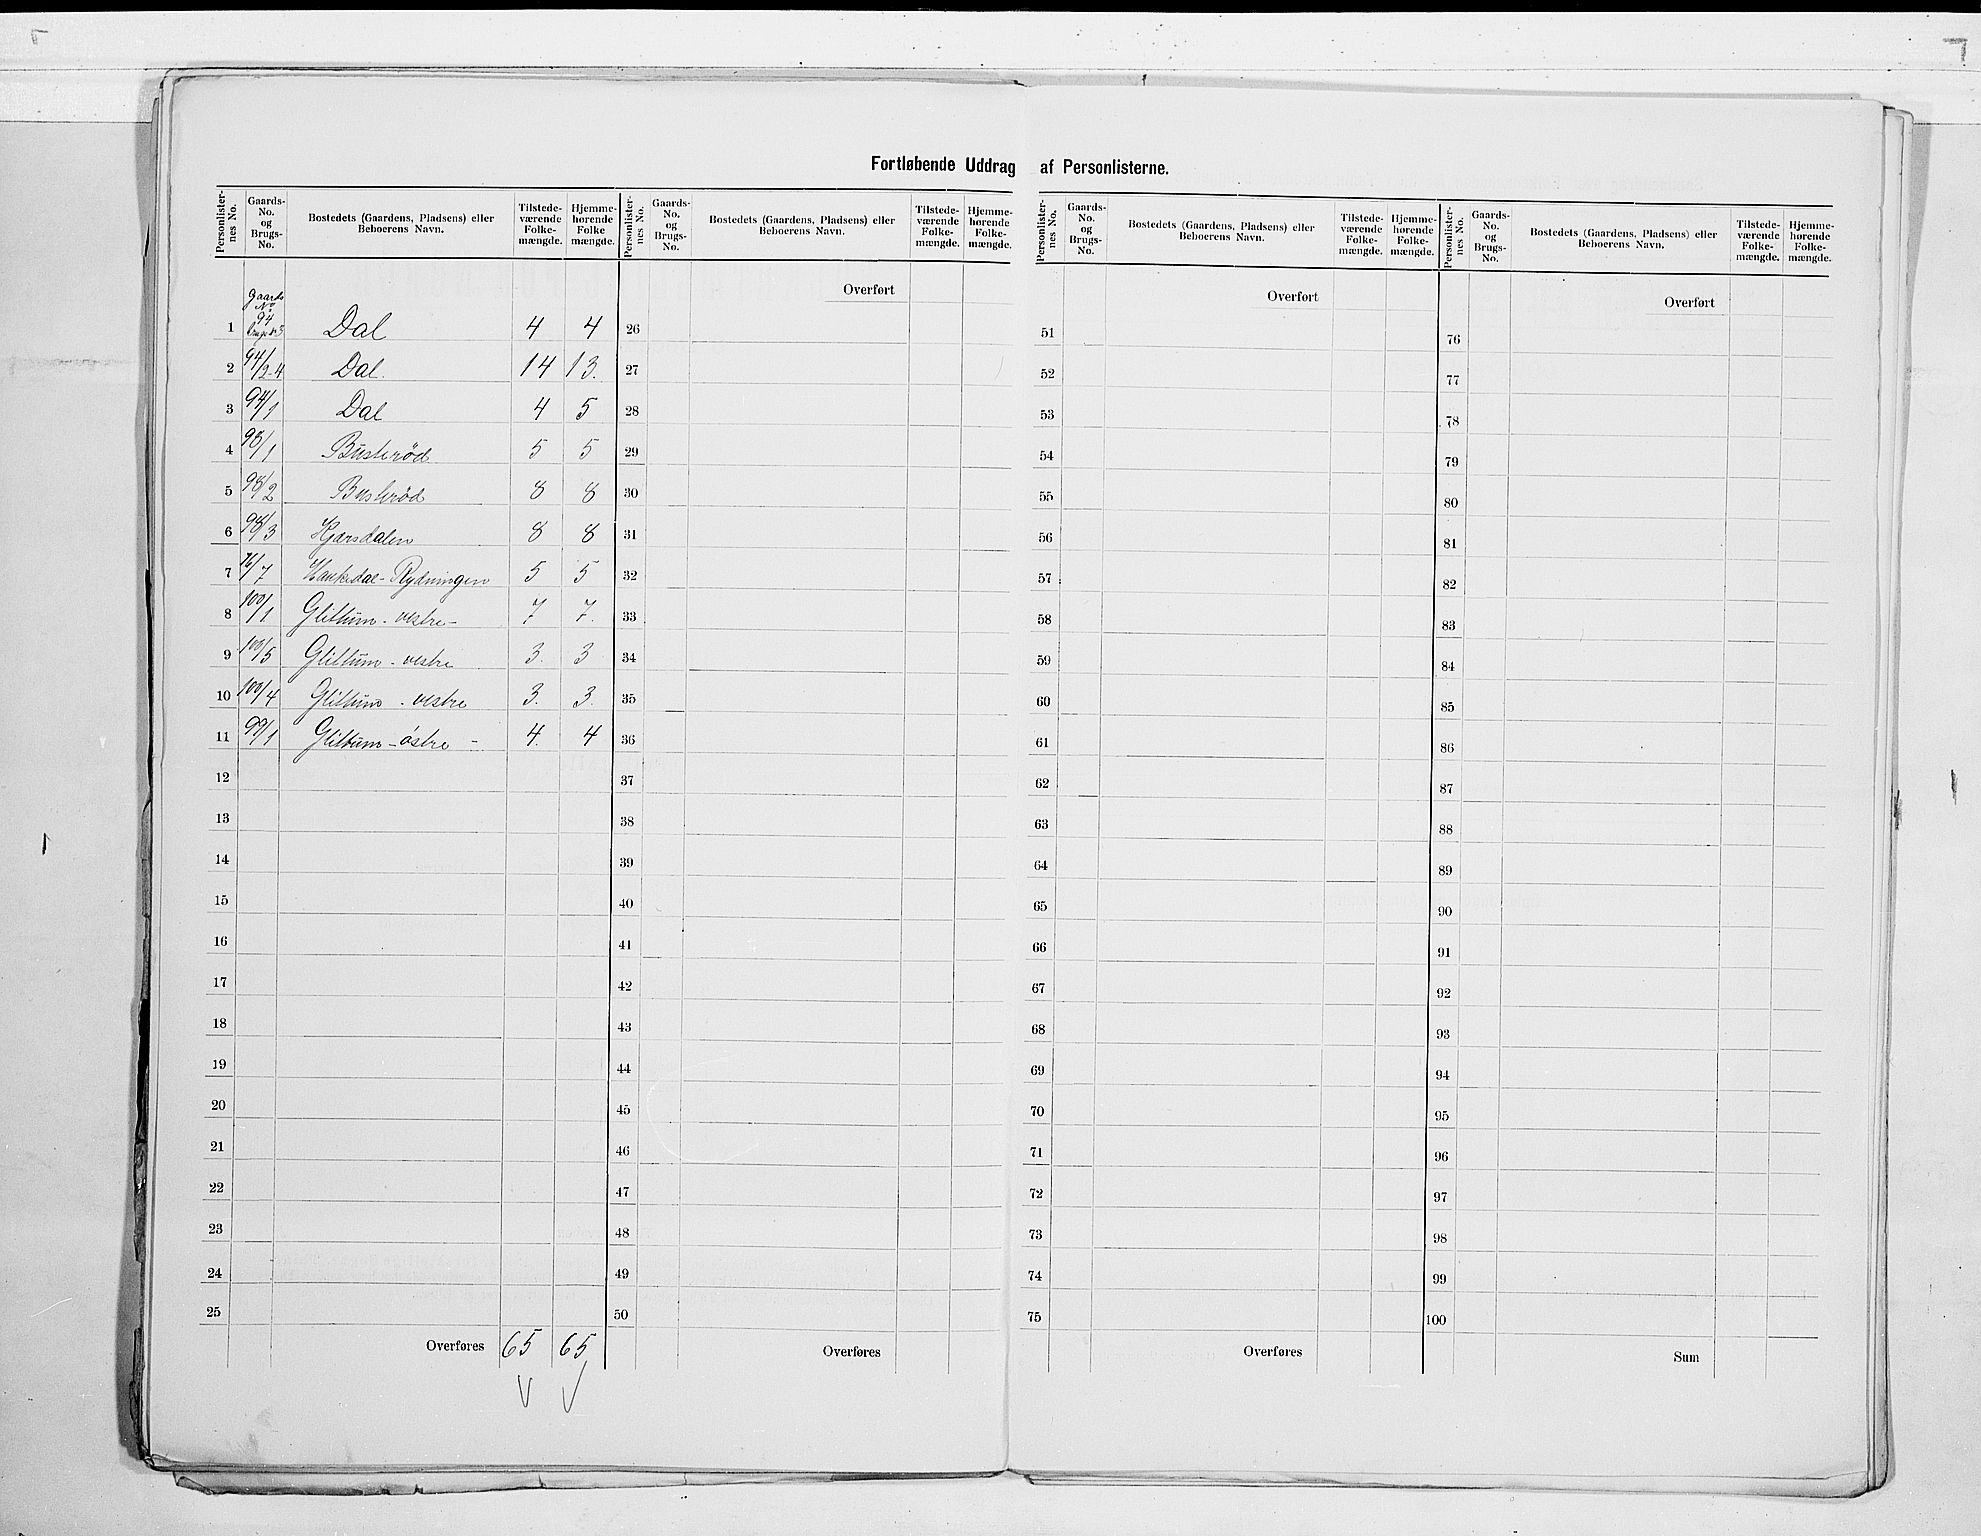 Fortløbende Uddrag af Personlisterne.
Personlister-nes No. Gaards-No. og Brugs-No. Bostedets (Gaardens, Pladsens) eller Beboerens Navn. Tilstede-værende Folke-mængde. Hjemme-hørende Folke mængde.
Gaards No 94
1 Dal 4 4
2 94/2-4 Dal. 14 13.
3 94/1 Dal 4 5
4 98/1 Busterød 5 5
5 98/2 Busterød 8 8
6 98/3 Hjærsdalen 8 8
7 76/7 Haukedal-Rydningen 5 5
8 100/1 Glittum - vestre - 7 7.
9 100/5 Glittum - vestre 3. 3
10 100/4 Glittum - vestre 3. 3.
11 99/1 Glittum - östre - 4. 4
12
13
14
15
16
17
18
19
20
21
22
23
24
25
Overføres 65 65
Personlister-nes No. Gaards-No. og Brugs-No. Bostedets (Gaardens, Pladsens) eller Beboerens Navn. Tilstede-værende Folke-mængde. Hjemme-hørende Folke-mængde.
Overført
26
27
28
29
30
31
32
33
34
35
36
37
38
39
40
41
42
43
44
45
46
47
48
49
50
Overføres
Personlister-nes No. Gaards-No. og Brugs-No. Bostedets (Gaardens, Pladsens) eller Beboerens Navn. Tilstede-værende Folke-mængde. Hjemme-hørende Folke-mængde.
Overført
51
52
53
54
55
56
57
58
59
60
61
62
63
64
65
66
67
68
69
70
71
72
73
74
75
Overføres
Personlister-nes No. Gaards-No. og Brugs-No. Bostedets (Gaardens, Pladsens) eller Beboerens Navn. Tilstede-værende Folke-mængde. Hjemme-hørende Folke-mængde.
Overført
76
77
78
79
80
81
82
83
84
85
86
87
88
89
90
91
92
93
94
95
96
97
98
99
100
Sum